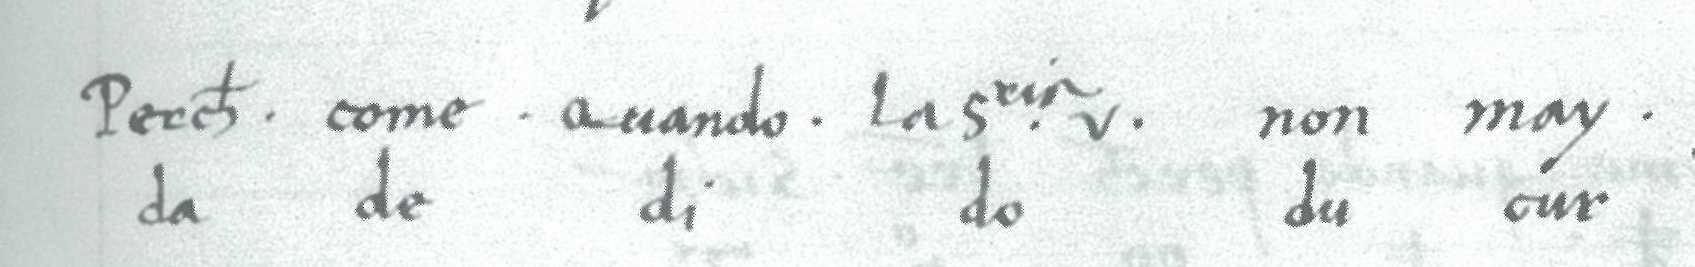 Perch . come . quando . La S.rin v . non may .
da de di do du cur